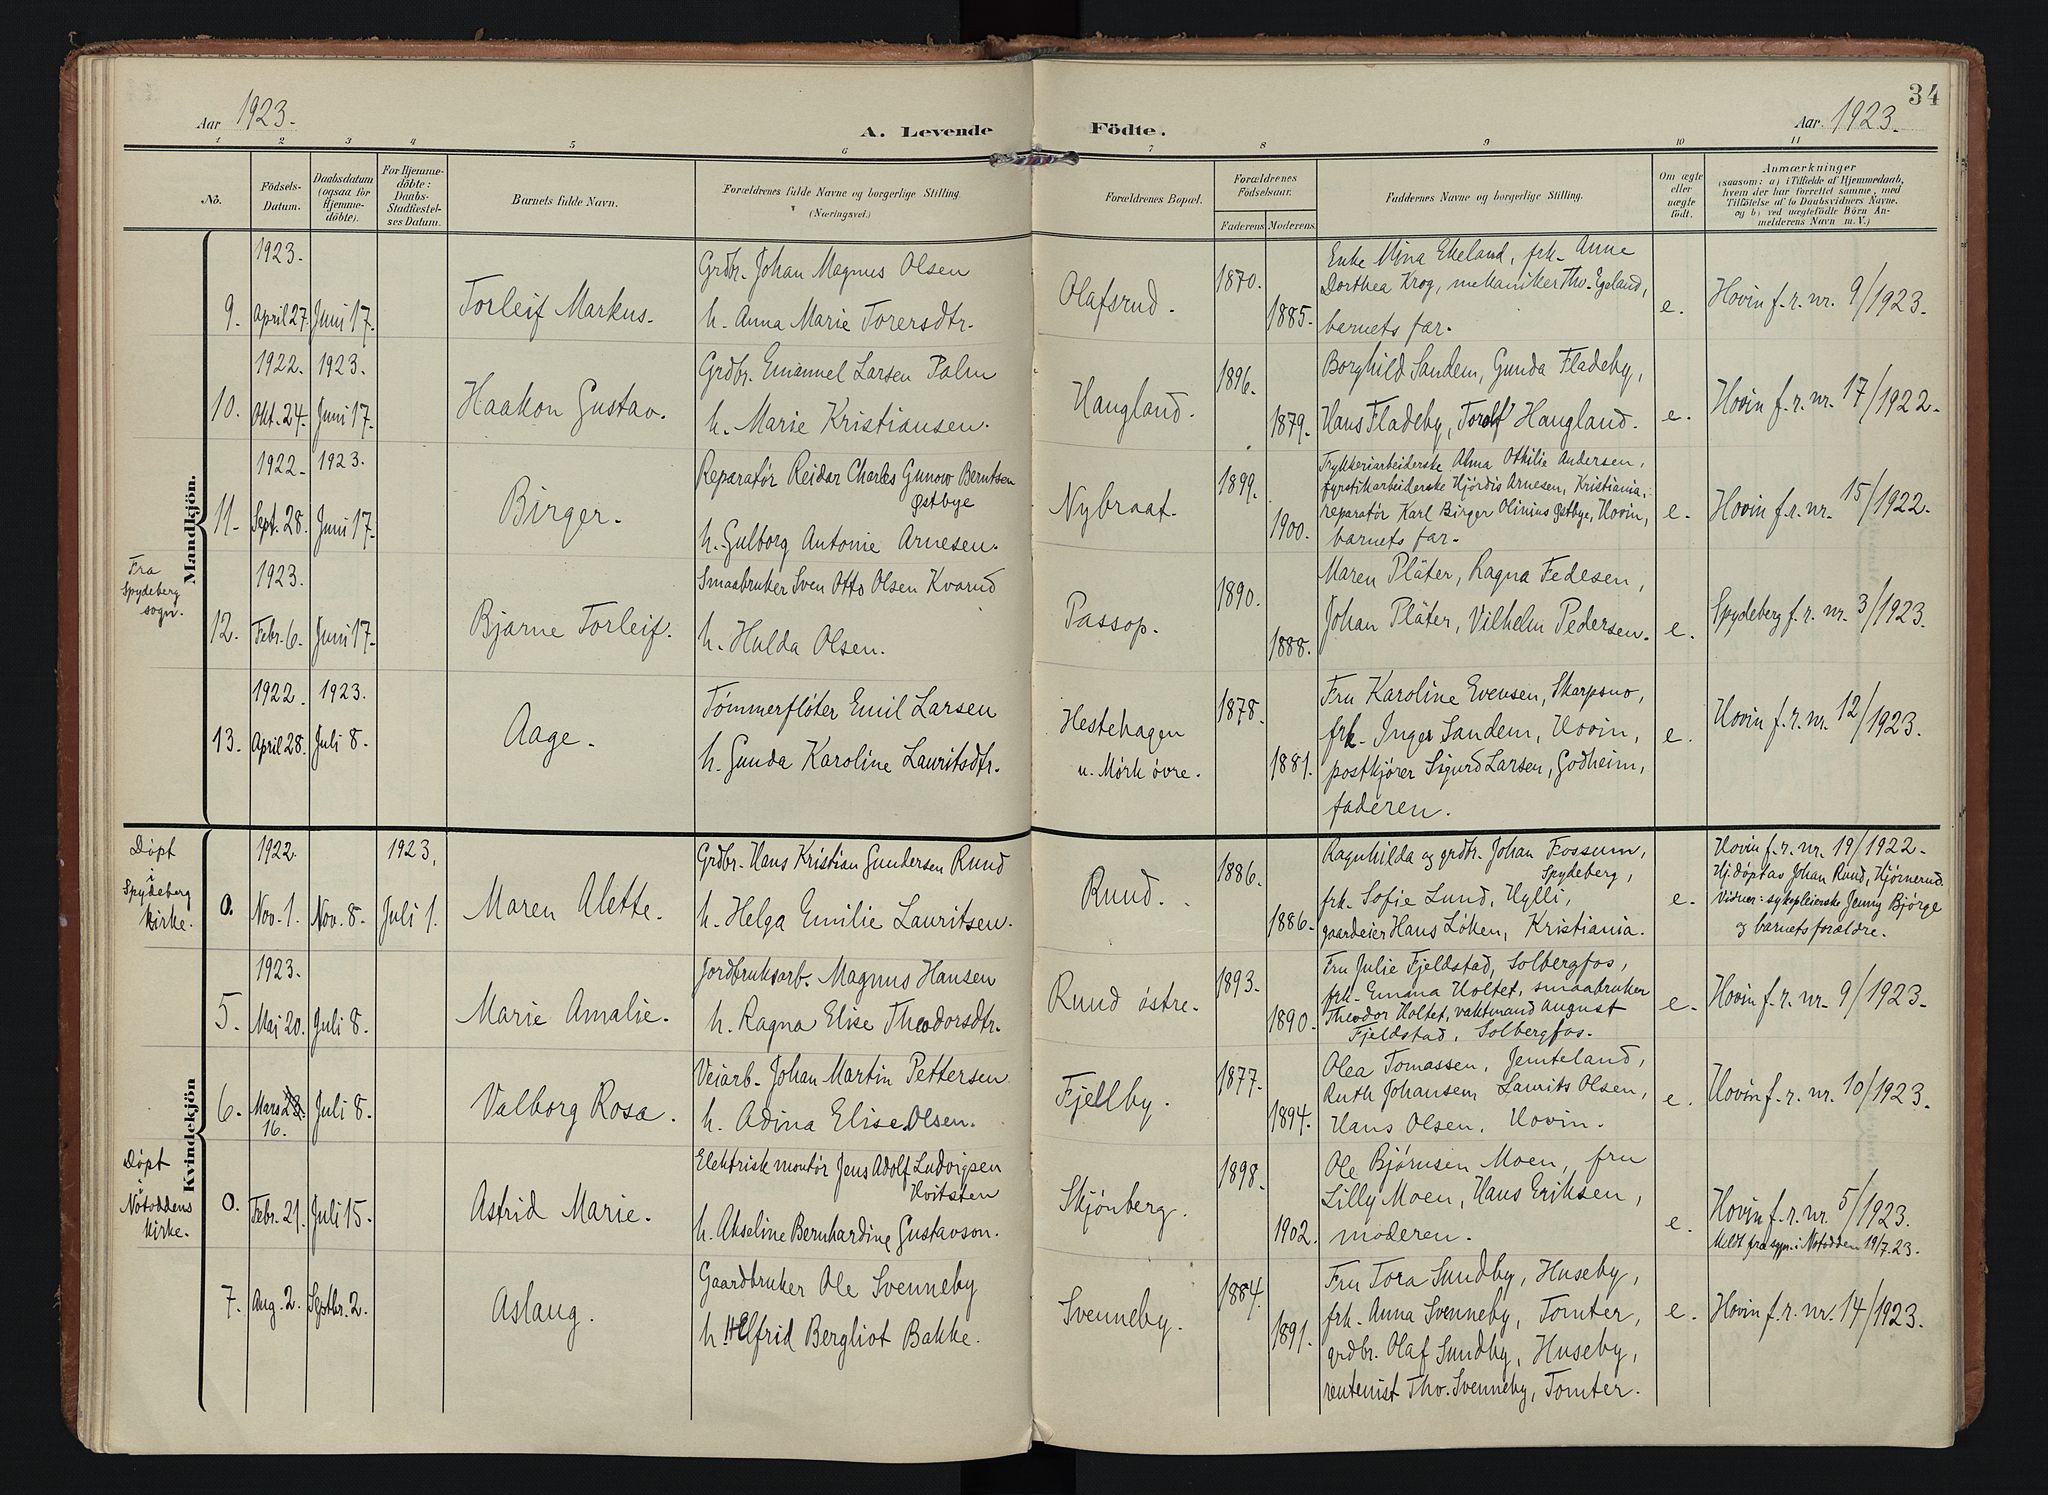 34
Aar 1923.
A. Levende Födte.
Aar 1923.
1 2 3 4 5 6 7 8 9 10 11
No.
Födsels-Datum.
Daabsdatum (ogsaa for Hjemme-döbte).
For Hjemme-döbte: Daabs-Stadfæstel-ses Datum.
Barnets fulde Navn.
Forældrenes fulde Navne og borgerlige Stilling.
(Næringsvei.)
Forældrenes Bopæl.
Forældrenes Födselsaar.
Faderens Moderens.
Faddernes Navne og borgerlige Stilling.
Om ægte eller uægte födt.
Anmærkninger
(saasom: a) i Tilfælde af Hjemmedaab, hvem der har forrettet samme, med Tilföielse af to Daabsvidners Navne. og b) ved uægtefödte Börn An-melderens Navn m. V.)
Mandkjön.
9. 1923. April 27. Juni 17.
Torleif Markus.
Grdbr. Johan Magnus Olsen
h. Anna Marie Torersdtr.
Olafsrud.
1870.
1885.
Enke Mina Ekeland, frk. Anne
Dorthea Krog, mekaniker Thv. Egeland,
barnets far.
e.
Hovin f. r. nr. 9/1923.
10. 1922. Okt. 24. 1923. Juni 17.
Haakon Gustav.
Grdbr. Emanuel Larsen Palm
h. Marie Kristiansen.
Haugland.
1896.
1879.
Borghild Sandem, Gunda Fladeby,
Hans Fladeby, Torolf Haugland.
e.
Hovin f. r. nr. 17/1922.
11. 1922. Sept. 28. 1923. Juni 17.
Birger.
Reparatør Reidar Charles Gunow Berntsen
Østbye
h. Gulborg Antonie Arnesen.
Nybraat.
1899.
1900.
Trykkeriarbeiderske Alma Othilie Andersen,
fyrstikarbeiderske Hjørdis Arnesen, Kristiania,
reparatør Karl Birger Olinius Østbye, Hovin,
barnets far.
e.
Hovin f. r. nr. 15/1922.
Fra
Spydeberg
sogn.
12. 1923. Febr. 6. Juni 17.
Bjarne Torleif.
Smaabruker Sven Otto Olsen Kvarud
h. Hulda Olsen.
Passop.
1890.
1888.
Maren Pläter, Ragna Fedesen,
Johan Pläter, Vilhelm Pedersen.
e.
Spydeberg f. r. nr. 3/1923.
13. 1922. April 28. 1923. Juli 8.
Aage.
Tømmerfløter Emil Larsen
h. Gunda Karoline Lauritsdtr.
Hestehagen
u. Mørk øvre.
1878.
1881.
Fru Karoline Evensen, Skarpsno,
frk. Inger Sandem, Hovin,
postkjører Sigurd Larsen, Godheim,
faderen.
e.
Hovin f. r. nr. 12/1923.
Kvindekjön
Døpt
i
Spydeberg
kirke.
0. 1922. Nov. 1. Nov. 8. 1923, Juli 1.
Maren Alette.
Grdbr. Hans Kristian Gundersen Rund
h. Helga Emilie Lauritsen.
Rund.
1886.
1886.
Ragnhilda og grdbr. Johan Fossum,
Spydeberg,
frk. Sofie Lund, Hylli,
gaardeier Hans Løken, Kristiania.
e.
Hovin f. r. nr. 19/1922.
Hj. døpt av Johan Rund, Hjørnerud.
Vidner: sykepleierske Jenny Bjørge
og barnets forældre.
5. 1923. Mai 20. Juli 8.
Marie Amalie.
Jordbruksarb. Magnus Hansen
h. Ragna Elise Theodorsdtr.
Rund østre.
1893.
1890.
Fru Julie Fjeldstad, Solbergfos,
frk. Emma Holtet, smaabruker
Theodor Holtet, vaktmand August
Fjeldstad, Solbergfos.
e.
Hovin f. r. nr. 9/1923.
6. Mars 16. Juli 8.
Valborg Rosa.
Veiarb. Johan Martin Pettersen
h. Adina Elise Olsen.
Fjellby.
1877.
1894.
Olea Tomassen, Jemteland,
Ruth Johansen, Laurits Olsen,
Hans Olsen, Hovin.
e.
Hovin f. r. nr. 10/1923.
Døpt
i
Notoddens
kirke.
0. Febr. 21. Juli 15.
Astrid Marie.
Elektrisk montør Jens Adolf Ludvigsen
Hvitsten
h. Akseline Bernhardine Gustavson.
Skjønberg.
1898.
1902.
Ole Bjørnsen Moen, fru
Lilly Moen, Hans Eriksen,
moderen.
e.
Hovin f. r. nr. 5/1923.
Meldt fra spr. i Notodden 19/7.23.
7. Aug. 2. Septbr. 2.
Aslaug.
Gaardbruker Ole Svenneby
h. Helfrid Bergliot Bakke.
Svenneby.
1884.
1891.
Fru Tora Sundby, Huseby,
frk. Anna Svenneby, Tomter,
grdbr. Olaf Sundby, Huseby,
rentenist Tho. Svenneby, Tomter.
e.
Hovin f. r. nr. 14/1923.